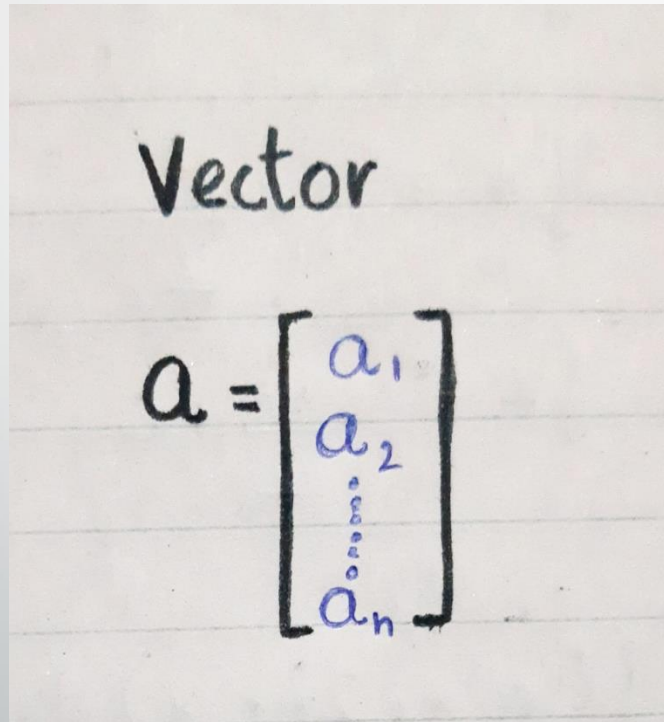 Vector
a = [ a₁
a₂
⋮
aₙ ]